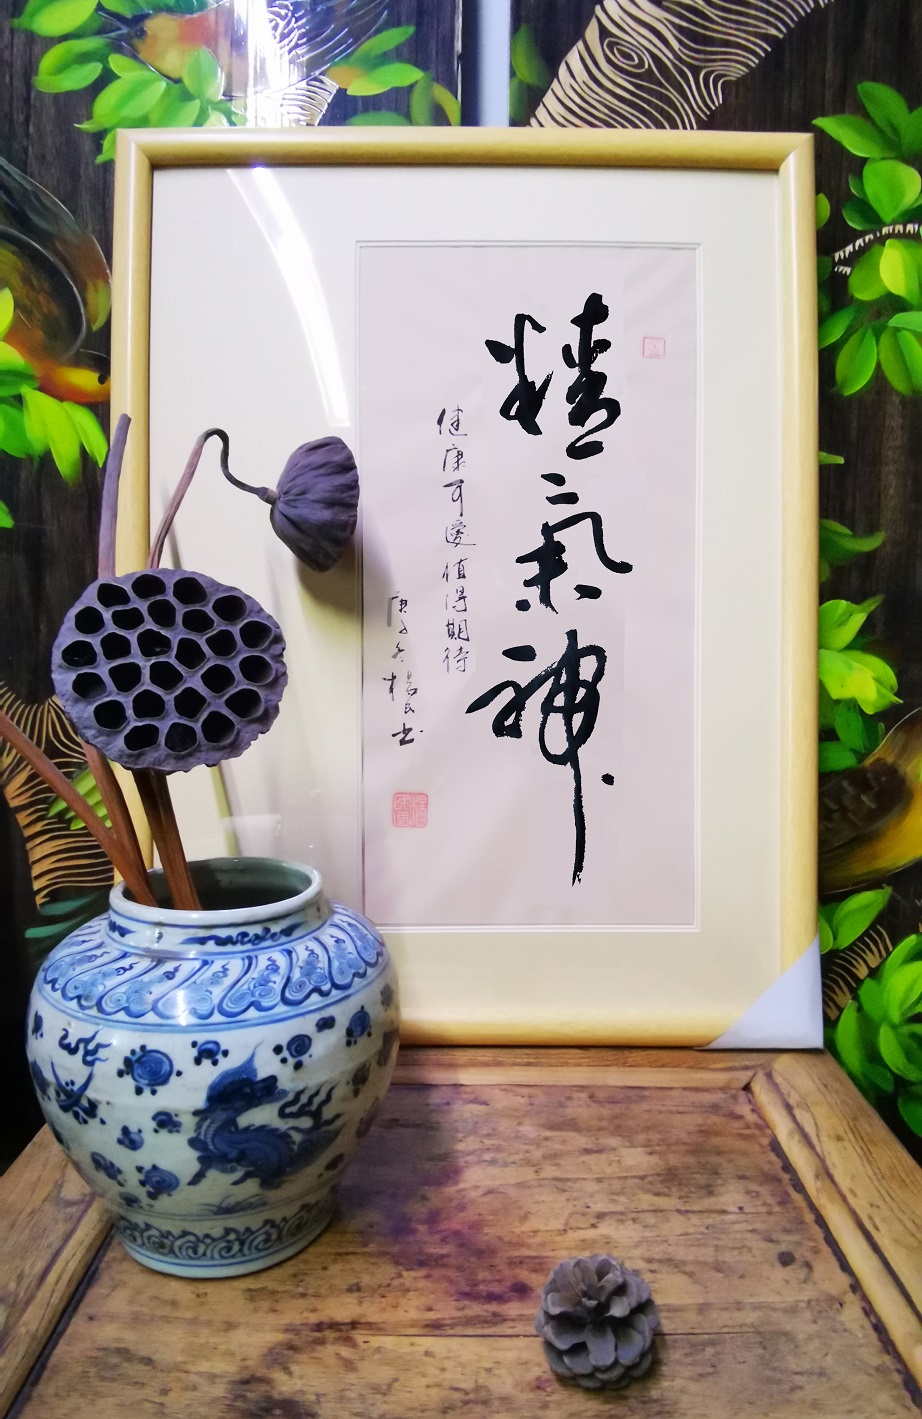 精氣神
健康可愛值得期待
庚子冬楊民书